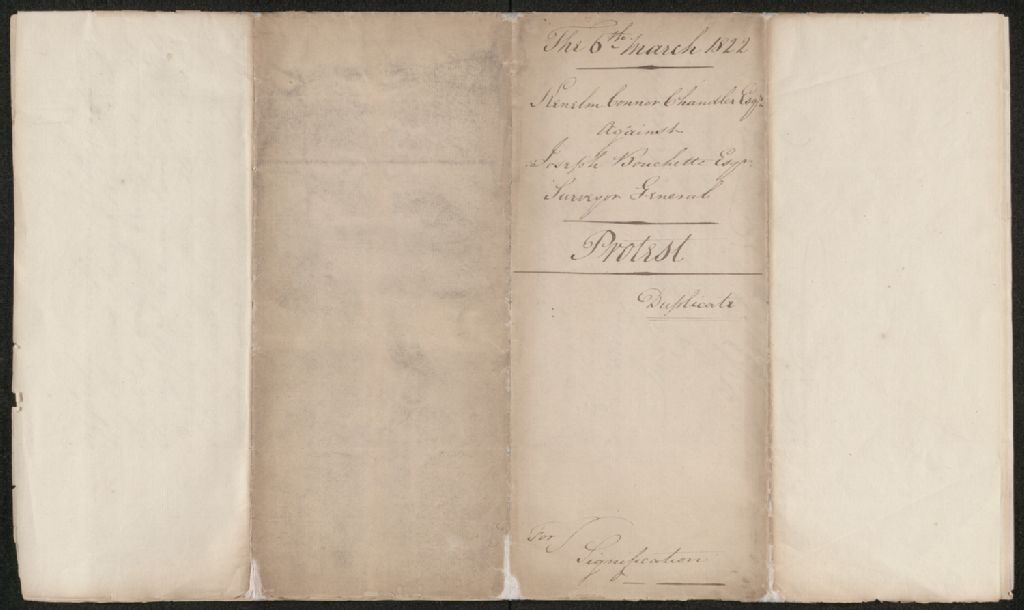 The 6th March 1822
Kenelm Connor Chandler Esqr.
Against
Joseph Bouchette Esqr.
Surveyor General
Protest
Duplicate
For
Signification